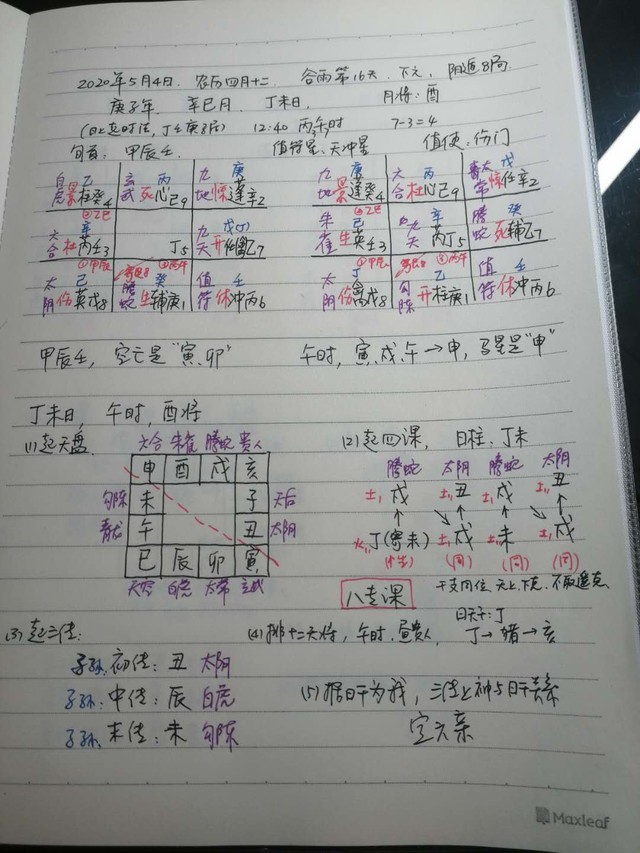 2020年5月4日. 农历四月十二 谷雨第16天. 下元, 阴遁8局.
庚子年. 辛巳月. 丁未日, 月将: 酉
(日上起时法, 丁壬庚子居) 12:40 丙午时 7-3=4
旬首: 甲辰壬. 值符星: 天冲星 值使: 伤门
白 乙 玄 丙 九 庚 九 庚 六 丙 青 戊
虎景柱癸4 武死心己9 地惊蓬辛2 地景蓬癸4 合杜心己9 惊任辛2
六 辛 九 戊 朱 己 九 辛 腾 癸
合杜芮壬3 丁5 天开任乙7 雀生英壬3 天芮丁5 蛇死辅乙7
太 己 腾 癸 值 壬 太 丁 勾 乙 值 壬
阴伤英戊8 蛇生辅庚1 符休冲丙6 阴伤禽戊8 陈开柱庚1 符休冲丙6
甲辰壬, 空亡是“寅、卯” 午时, 寅、戌、午→申, 马星是“申”
丁未日, 午时, 酉将
(1)起天盘. 六合 朱雀 腾蛇 贵人 (2)起四课, 日柱: 丁未
申 酉 戌 亥 腾蛇 太阴 腾蛇 太阴
勾陈 未 子 天后 土,戌 土,丑 土,戌 土,丑
青龙 午 丑 太阴 火,丁(寄未) 土,戌 土,未 土,戌
巳 辰 卯 寅 (生) (同) (同) (同)
天空 白虎 太常 玄武 八专课 干支同位, 无上下克, 不取遥克.
日天干: 丁
(3)起三传: (4)排十二天将, 午时, 昼贵人, 丁→猪→亥
子孙: 初传: 丑 太阴
子孙: 中传: 辰 白虎 (5)据日干为我, 三传上神与日干关系
子孙: 末传: 未 勾陈 定六亲
Maxleaf